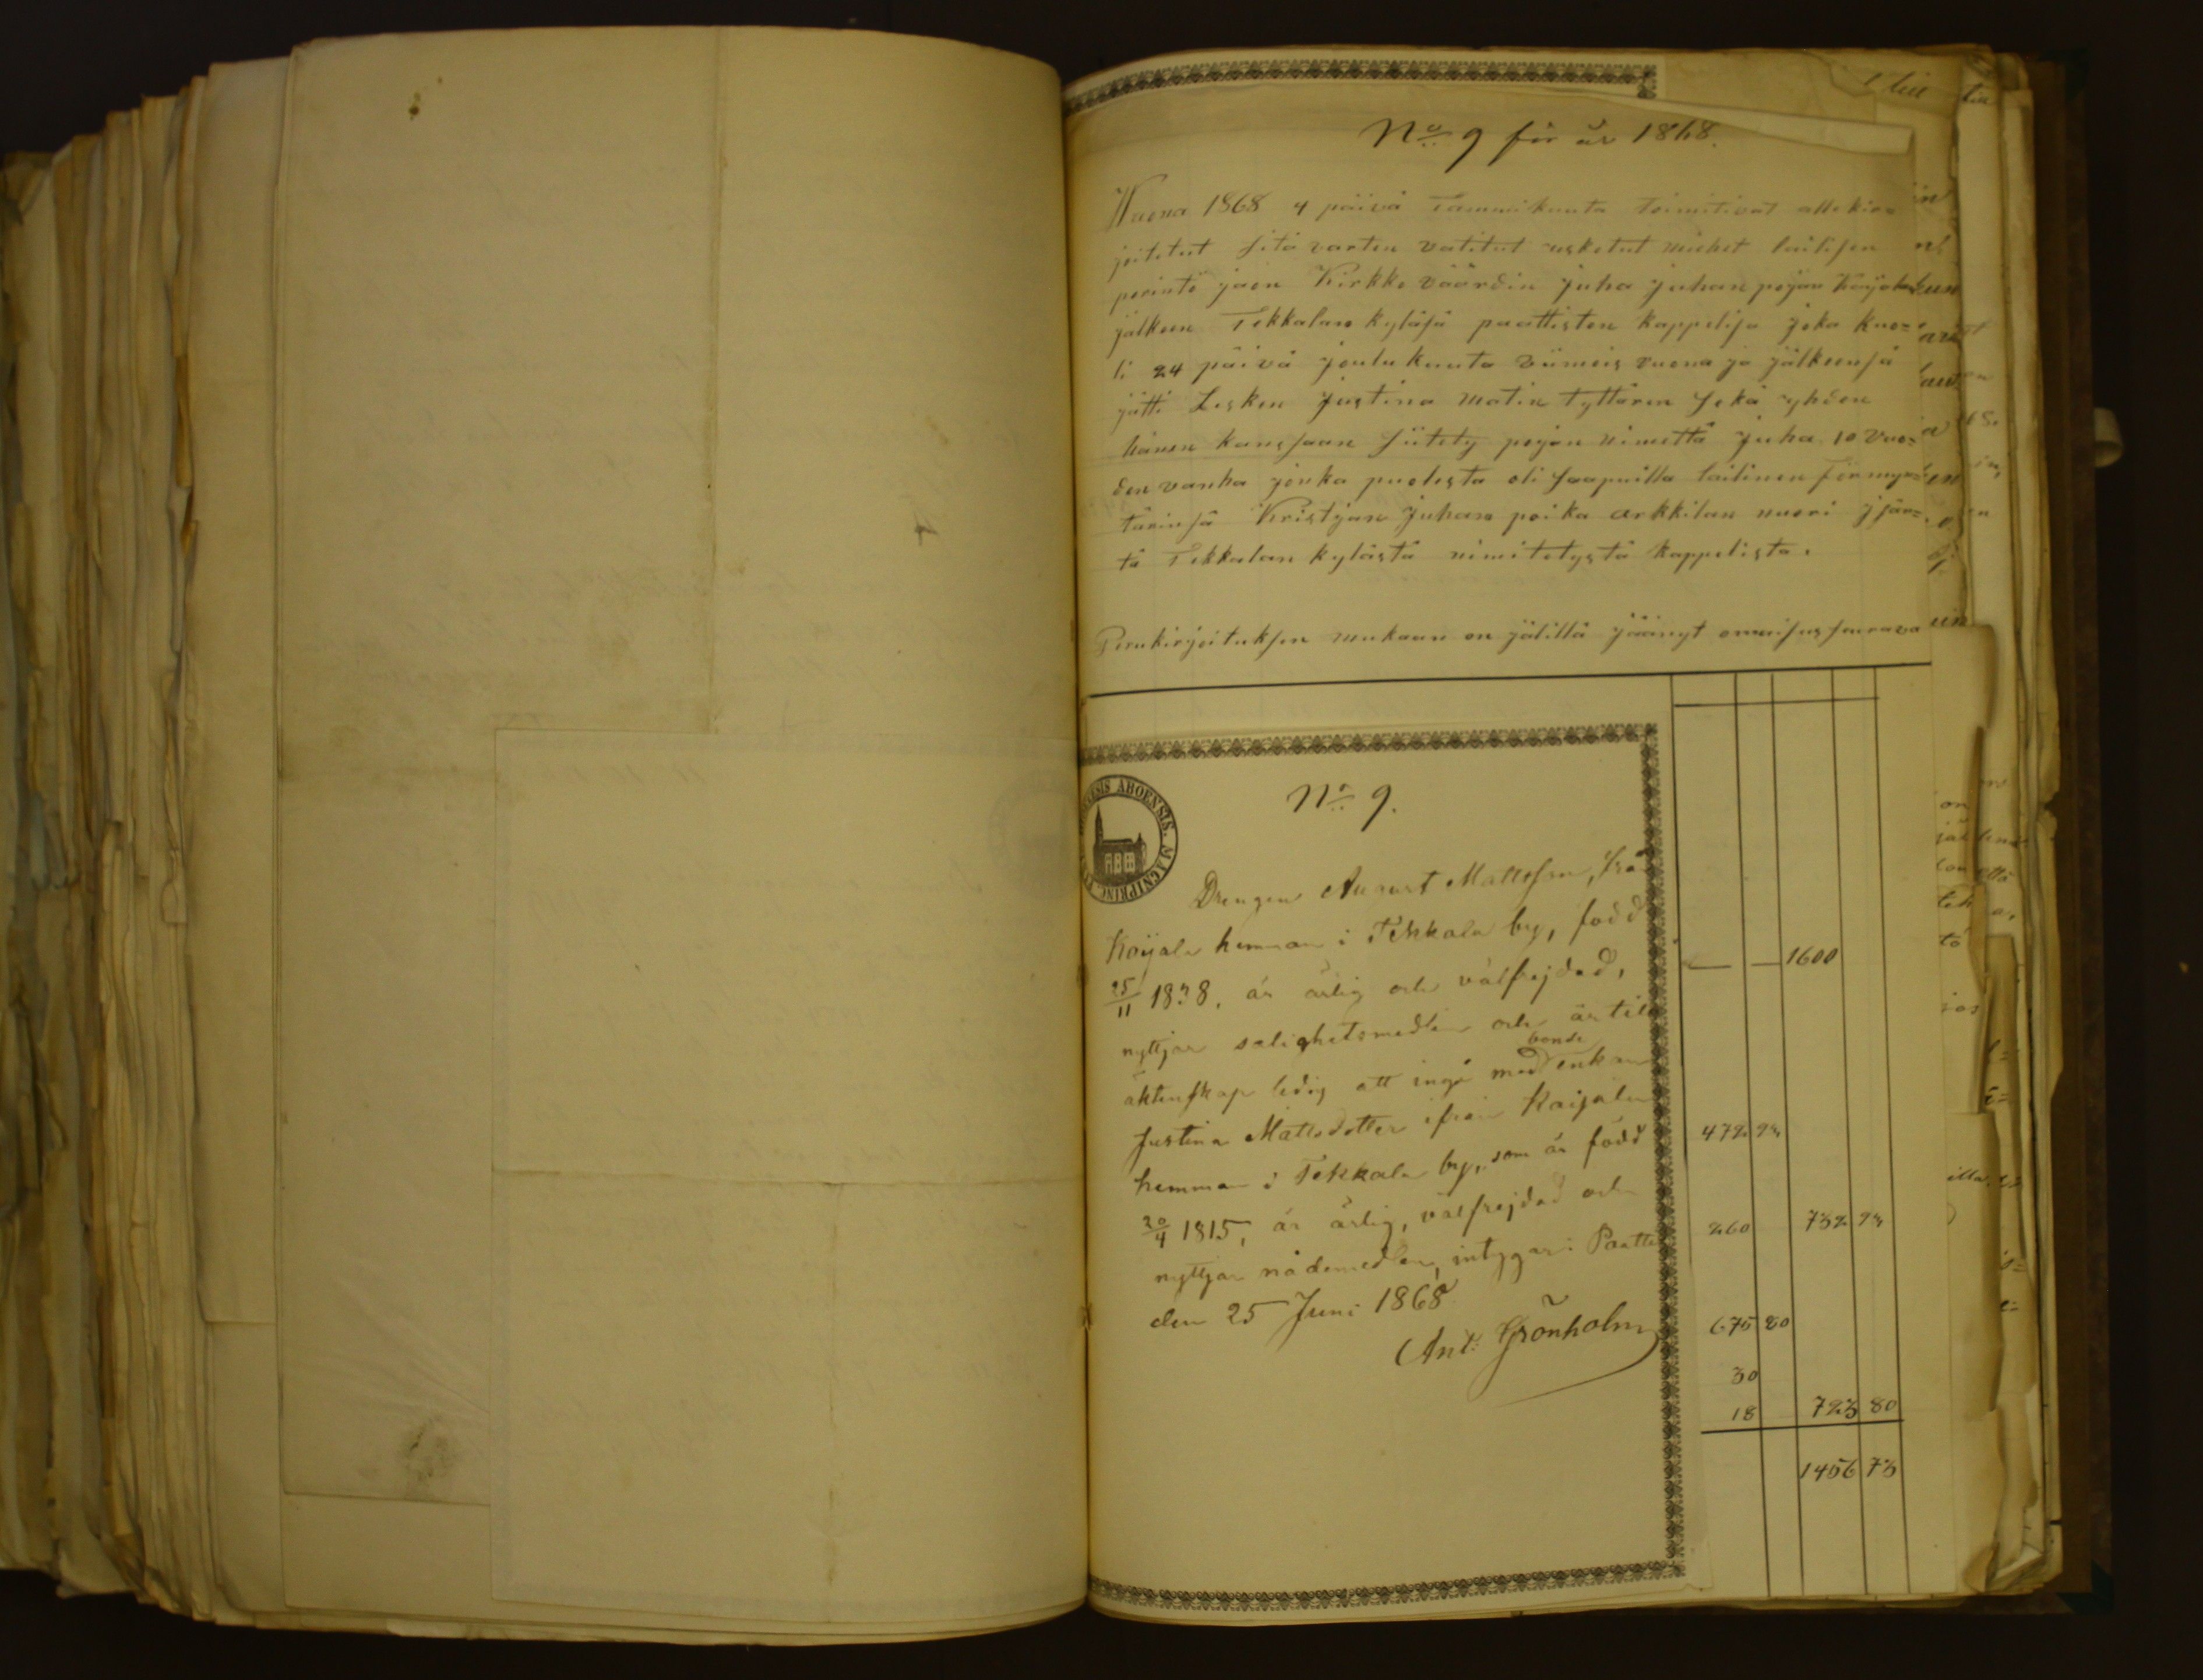 No 9 för år 1868.
Wuona 1868 4 päivä Tammikuuta toimitivat allekir-
joitetut sitä varten vatitut uskotut miehet lailisen
perintö jaon Kirkko väärdin Juha Juhan pojan Koijalan
jälkeen Tekkalan kyläsä paattisten kappelisa joka kuo=
li 24 päivä joulukuuta viimeis vuona ja jälkeensä
jätti Lesken Justina Matin tyttären sekä yhden
hänen kanssaan siitety pojan nimettä Juha 10 vuo=
den vanha jonka puolesta oli saapuilla lailinen förmyn=
tärinsä Kristjan Juhan poika arkkilan nuori jsän=
tä Tekkalan kylästä nimitetystä kappelista.
Perukirjoituksen mukaan on jälillä jäänyt omaisus seurava
No 9.
ABOENSIS. MAGNIPRINC.
Drengen August Mattsson, frå
Koijala hemman i Tekkala by, född
25/11 1838, är ärlig och välfrejdad,
nyttjar salighetsmedlen och är till
äktenskap ledig att ingå med bonde enkan
Justina Mattsdotter ifrån Kaijala
hemman i Tekkala by, som är född
20/4 1815, är ärlig, välfrejdad och
nyttjar nådemedlen, intygar: Paattis
den 25 Juni 1868
Ant. Grönholm
1600
472 93
260 732 93
675 80
30
18 723 80
1456 73